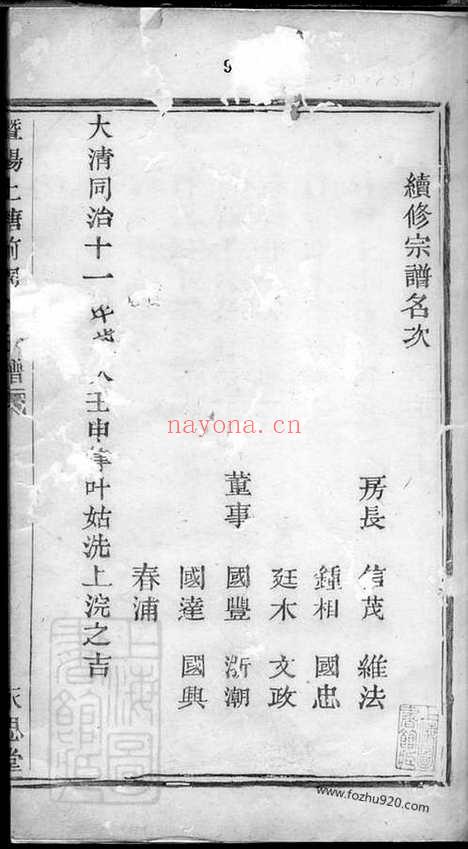 9
續修宗譜名次
房長 信茂 維法
鍾相 國忠
廷木 文政
董事 國豐 浙潮
國達 國興
春浦
大清同治十一年歲次壬申律叶姑洗上浣之吉
譜
思堂
nayona.cn
www.fozhu920.com